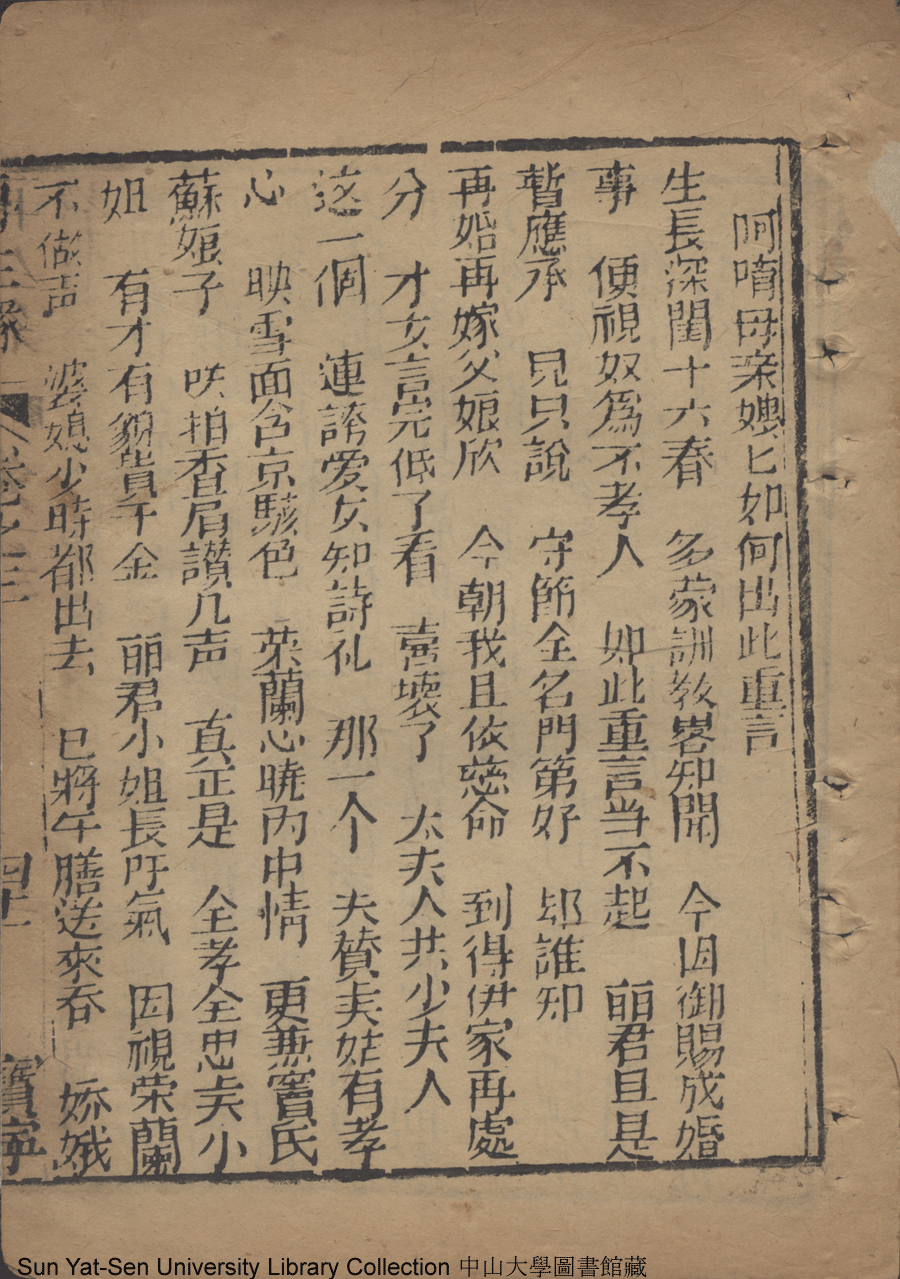 呵唷母亲嫂匕如何出此重言
生長深閨十六春　多蒙訓教畧知聞　今因御賜成婚
事　便視奴爲不孝人　如此重言当不起　丽君且是
暫應承　見只說　守節全名門第好　却誰知
再婚再嫁父娘欣　今朝我且依慈命　到得伊家再處
分　才女言完低了看　喜壞了　太夫人共少夫人
这一個　連誇爱女知詩礼　那一个　夫賛夫姑有孝
心　映雪面含京駭色　荣蘭心暁内中情　更兼竇氏
蘇娘子　咲拍香肩讃几声　真正是　全孝全忠夫小
姐　有才有貌貴千金　丽君小姐長吁氣　因視荣蘭
不做声　婆媳少時都出去　已將午膳送來吞　姣娥
卷之三
四十一
寶寧
Sun Yat-Sen University Library Collection 中山大學圖書館藏